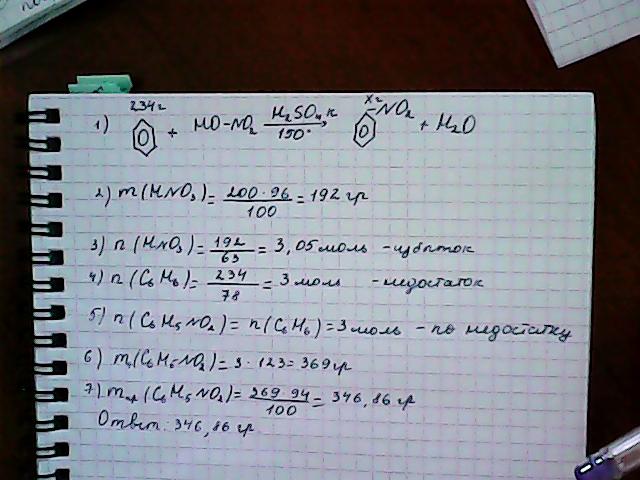 234 г      x г
1) + HO-NO₂ H₂SO₄ к 150° NO₂ + H₂O
2) m (HNO₃) = 200·96/100 = 192 гр
3) n (HNO₃) = 192/63 = 3,05 моль - избыток
4) n (C₆H₆) = 234/78 = 3 моль - недостаток
5) n (C₆H₅NO₂) = n (C₆H₆) = 3 моль - по недостатку
6) m (C₆H₅NO₂) = 3 · 123 = 369 гр
7) m пр (C₆H₅NO₂) = 269·94/100 = 346,86 гр
Ответ: 346,86 гр